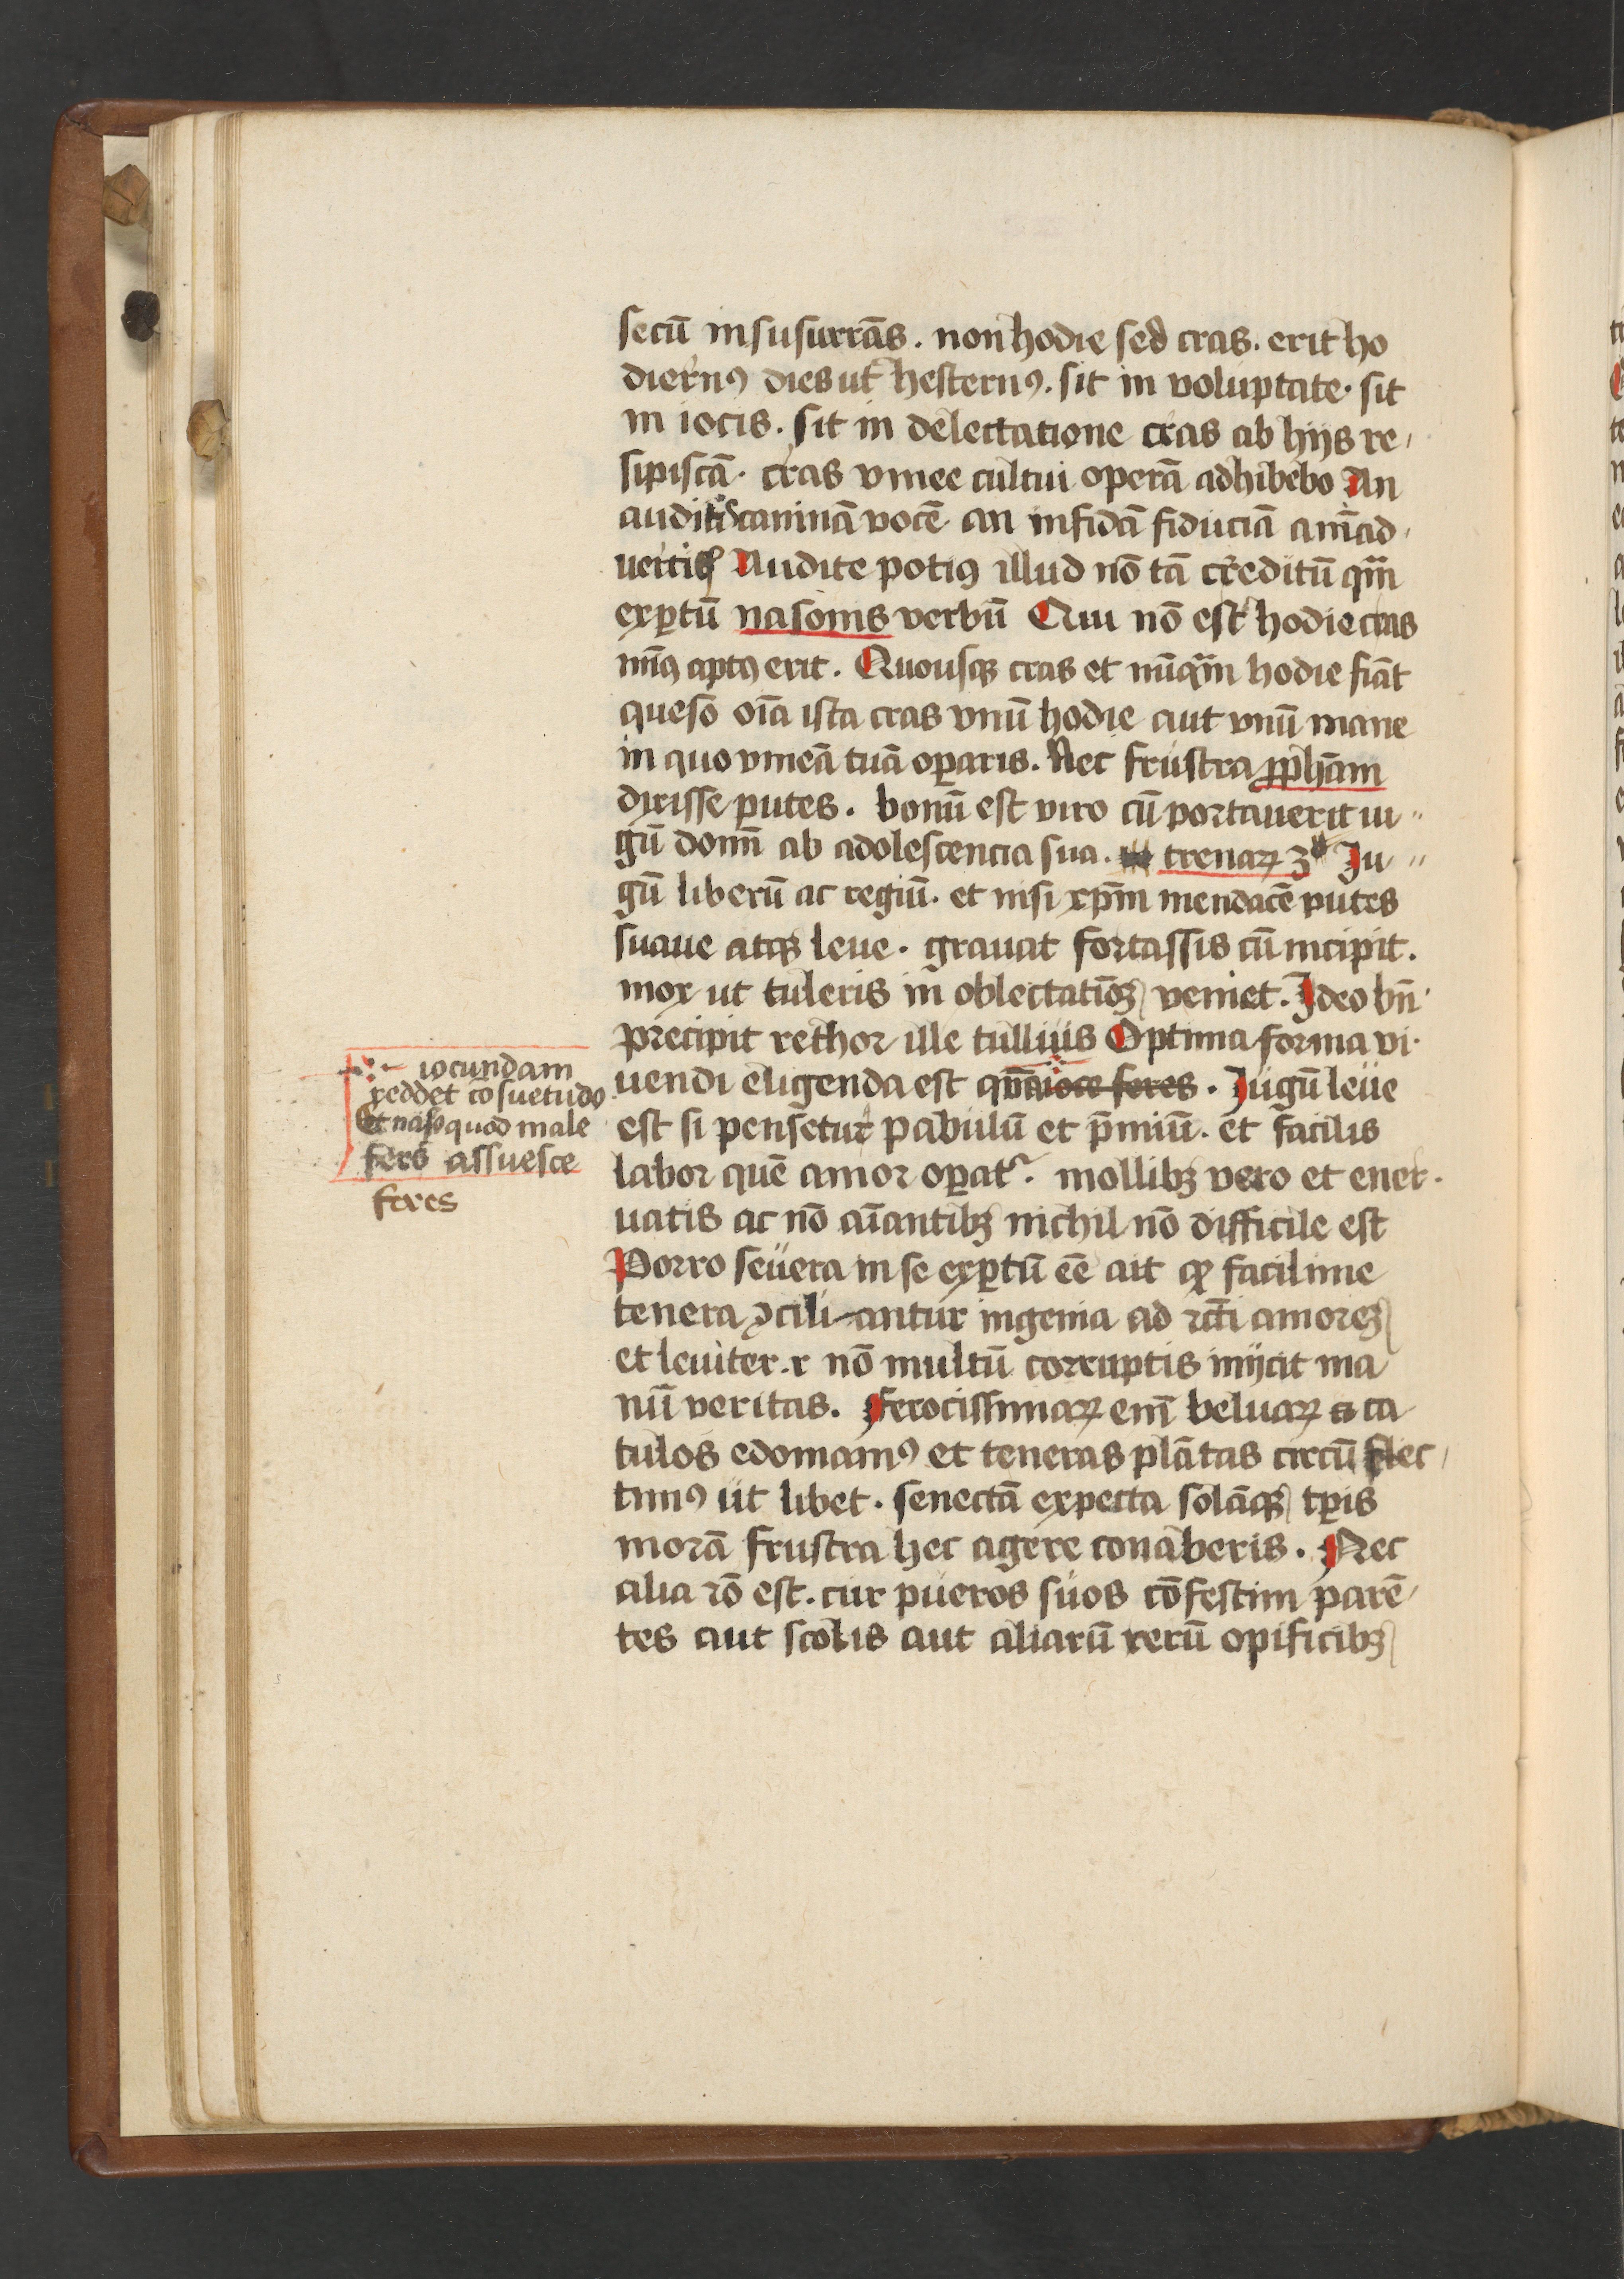 secū insusurrās . non hodie sed cras . erit ho
diernꝯ dies ut hesternꝯ . sit in voluptate . sit
in iocis . sit in delectatione cras ab hijs re
sipiscā . cras vinee cultui operā adhibebo An
auditis caninā vocē an infidā fiduciā aīad
uertitis Audite potiꝯ illud nō tā creditū qm̄
exꝑtū nasonis verbū Qui nō est hodie cras
minꝯ aptꝯ erit . Quousqꝫ cras et nūqm̄ hodie fiāt
quesō oīa ista cras vnū hodie aut vnū mane
in quo vineā tuā oꝑaris . Nec frustra ꝓphām
dixisse putes . bonū est viro cū portauerit iu
gū domī ab adolescencia sua . trenaꝝ 3º Ju
gū liberū ac regiū . et nisi xp̄m mendacē putes
suaue atqꝫ leue . grauat fortassis cū incipit .
mox ut tuleris in oblectatiōꝫ veniet . Ideo bn̄
precipit rethor ille tullius Optima forma vi
uendi eligenda est qm̄ feres . Jugū leue
est si pensetur pabulū et p̄miū . et facilis
labor quē amor oꝑat᷑ . mollibꝫ vero et ener
uatis ac nō amantibꝫ nichil nō difficile est
Porro seuera in se exꝑtū eē ait ꝙ facilime
tenera ꝯcili-antur ingenia ad rc̄ti amoreꝫ
et leuiter . r nō multū corruptis inijcit ma
nū veritas . Ferocissimaꝝ em̄ beluaꝝ ca
tulos edomamꝯ et teneras plātas circū flec
timꝯ ut libet . senectā expecta solāqꝫ tꝑis
morā frustra hec agere conaberis . Nec
alia rō est . cur pueros suos cōfestim parē
tes aut scolis aut aliarū rerū opificibꝫ
iocundam
reddet cōsuetudo
Et naso quod male
fers assuesce
feres